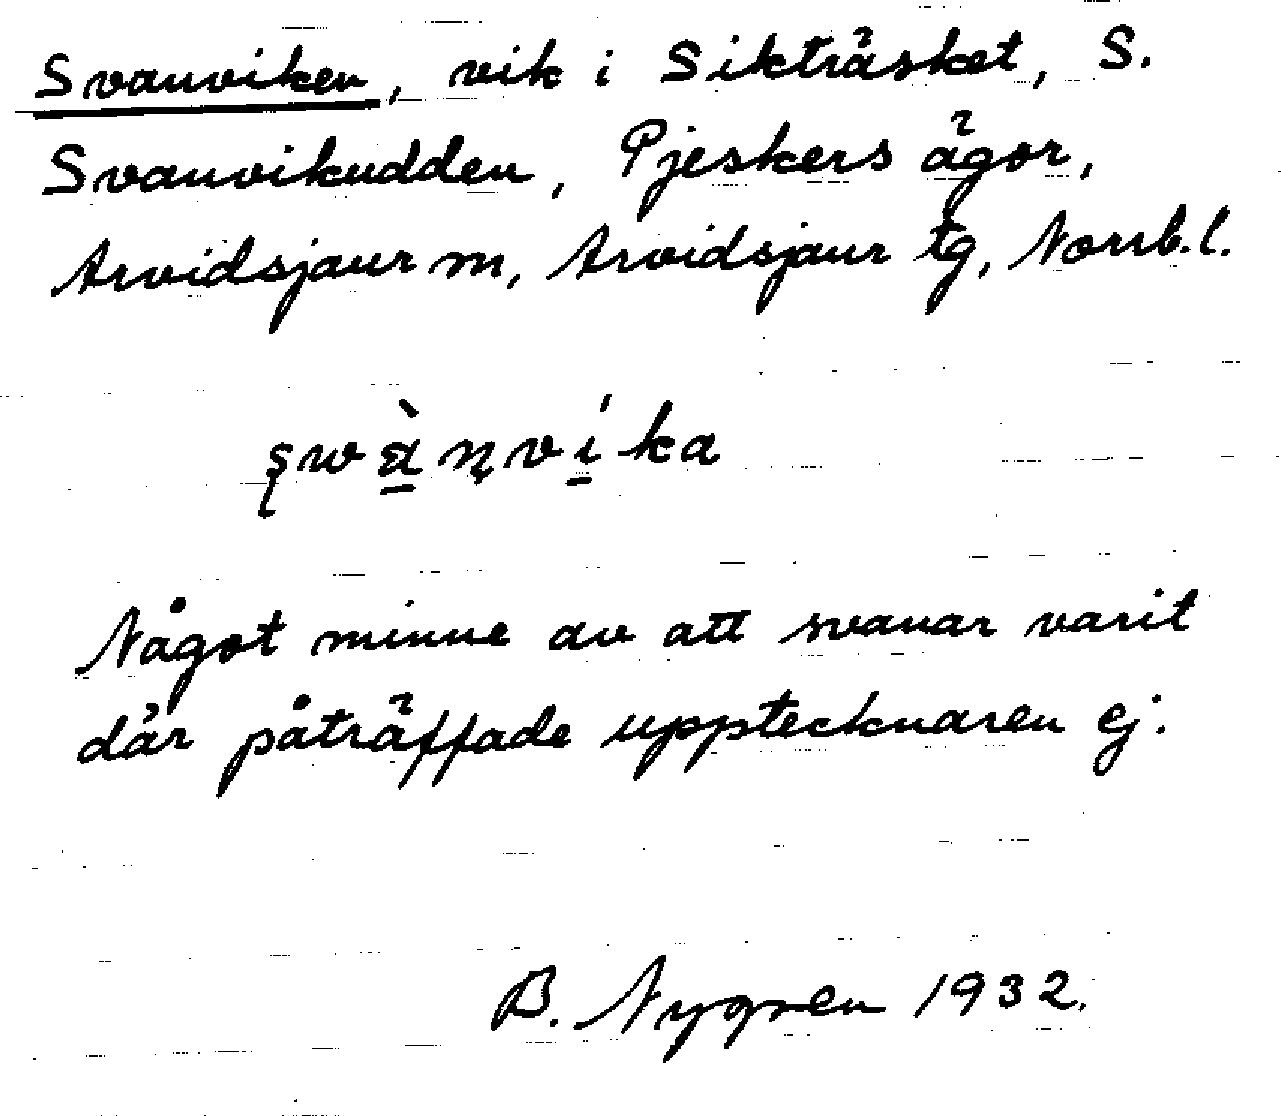 Svanviken, vik i Sikträsket, S.
Svanvikudden, Pjeskers ägor,
Arvidsjaur m, Arvidsjaur tg, Norrb.l.
șwà̱ņví̱ka
Något minne av att svanar varit
där påträffade upptecknaren ej.
B. Nygren 1932.